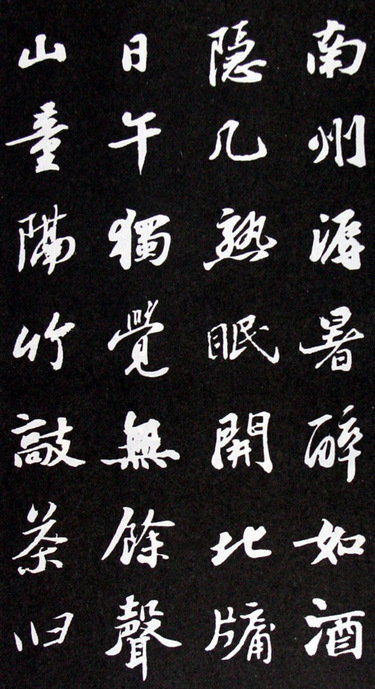 南州溽暑醉如酒
隐几熟眠開北牖
日午獨覺無餘聲
山童隔竹敲茶旧